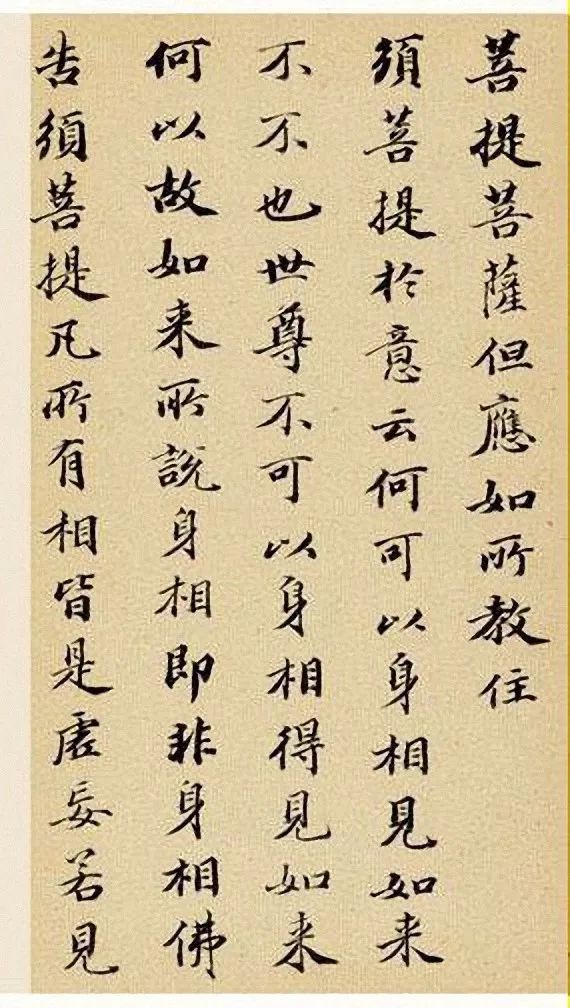 菩提菩薩但應如所教住
須菩提於意云何可以身相見如来
不不也世尊不可以身相得見如来
何以故如来所說身相即非身相佛
告須菩提凡所有相皆是虛妄若見